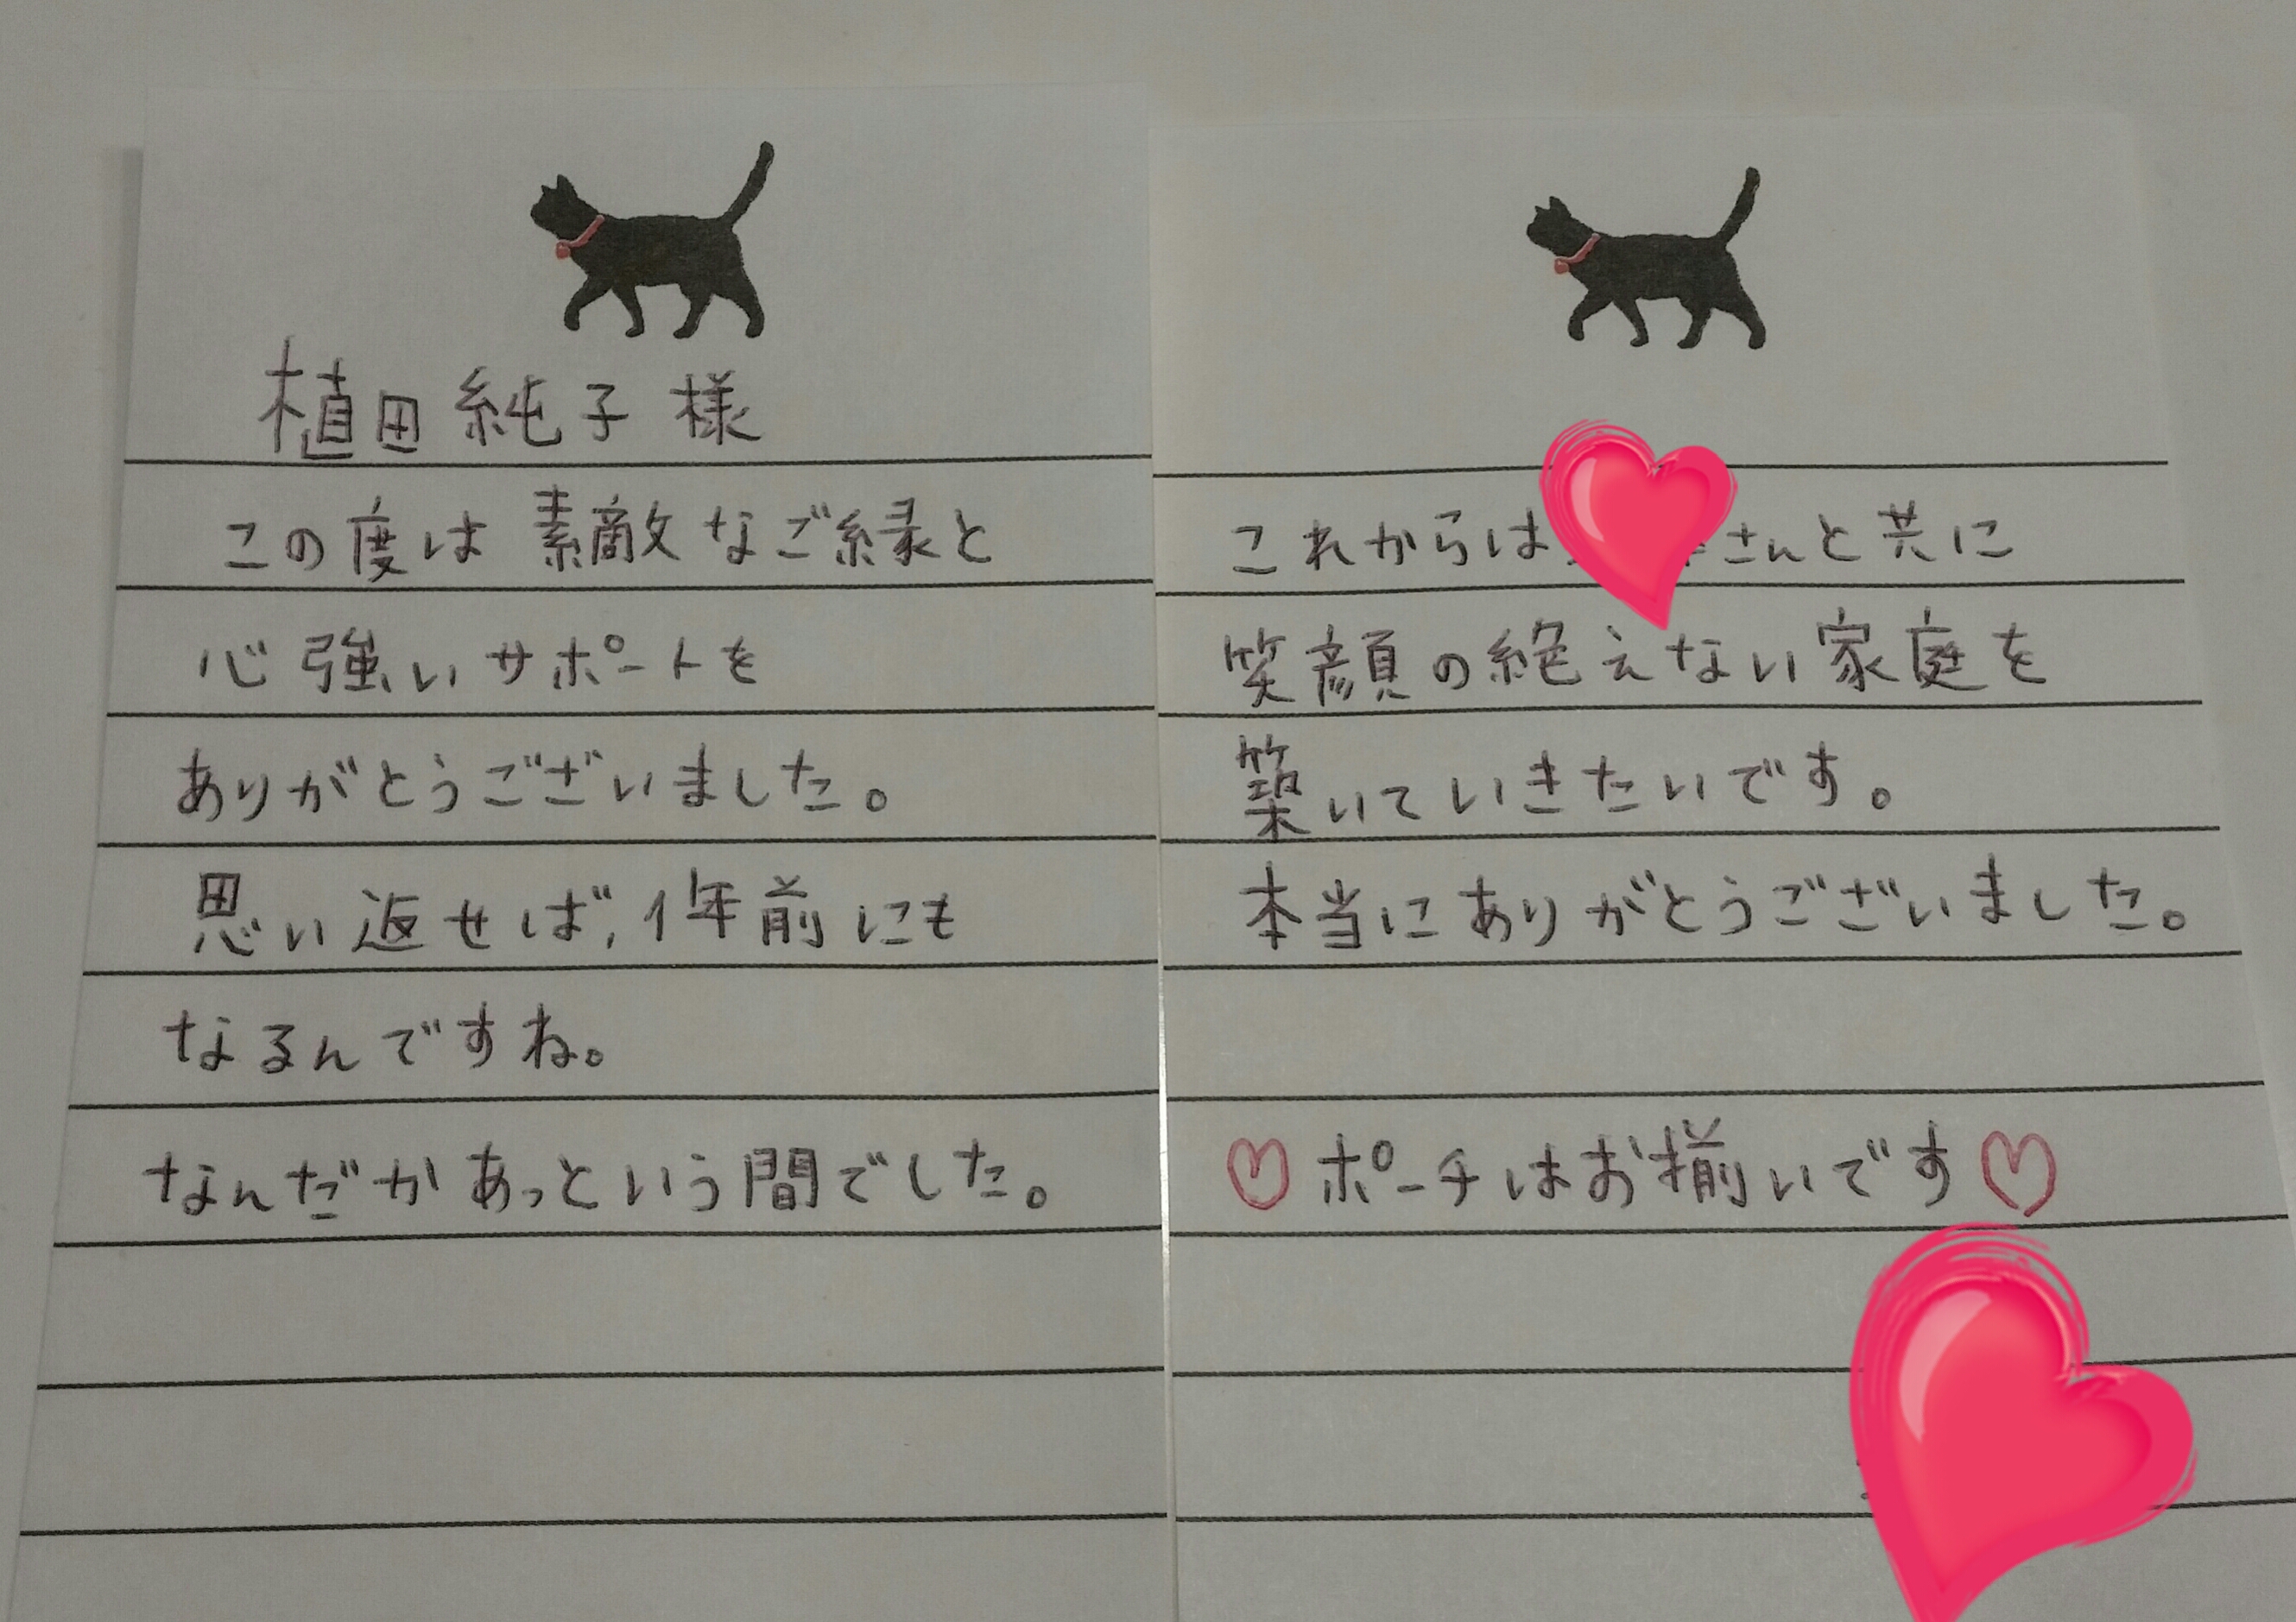 植田 純子 様
この度は 素敵なご縁と
心強いサポートを
ありがとうございました。
思い返せば、1年前にも
なるんですね。
なんだかあっという間でした。
これからは さんと共に
笑顔の絶えない家庭を
築いていきたいです。
本当にありがとうございました。
♡ポーチはお揃いです♡